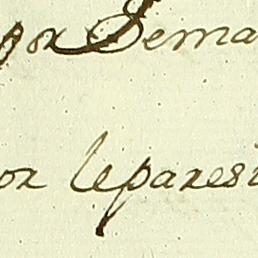 por Dema
or leparesi